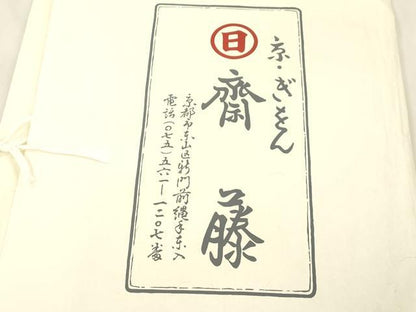 京・ぎをん
日
齋藤
京都市東山区新門前縄手東入
電話(〇七五)五六一―一二〇七番